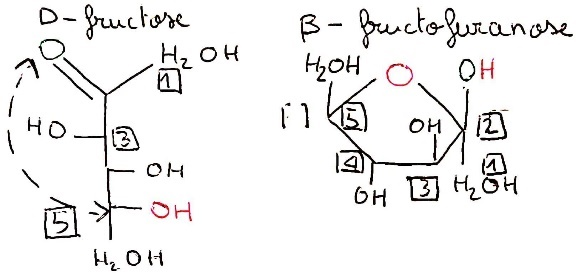 D-fructose
O
H₂OH
1
HO
3
OH
5
OH
H₂OH
β-fructofuranose
H₂OH
O
OH
[]
5
OH
2
4
1
OH
3
H₂OH